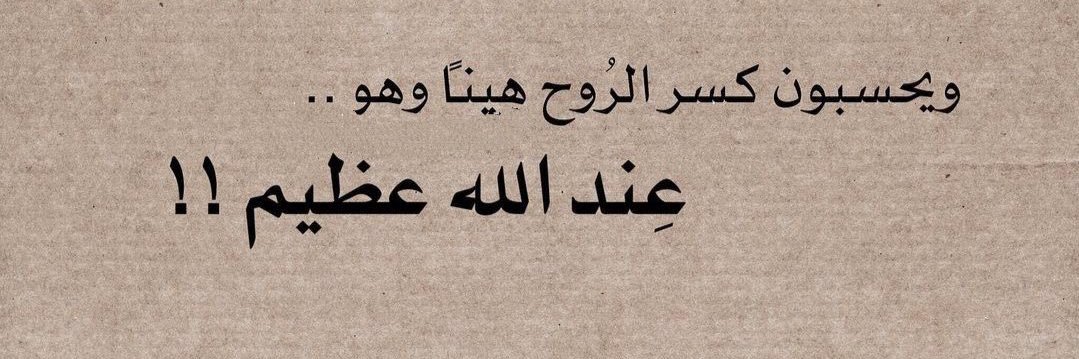 ويحسبون كسر الرُوح هينًا وهو ..
عِند الله عظيم !!